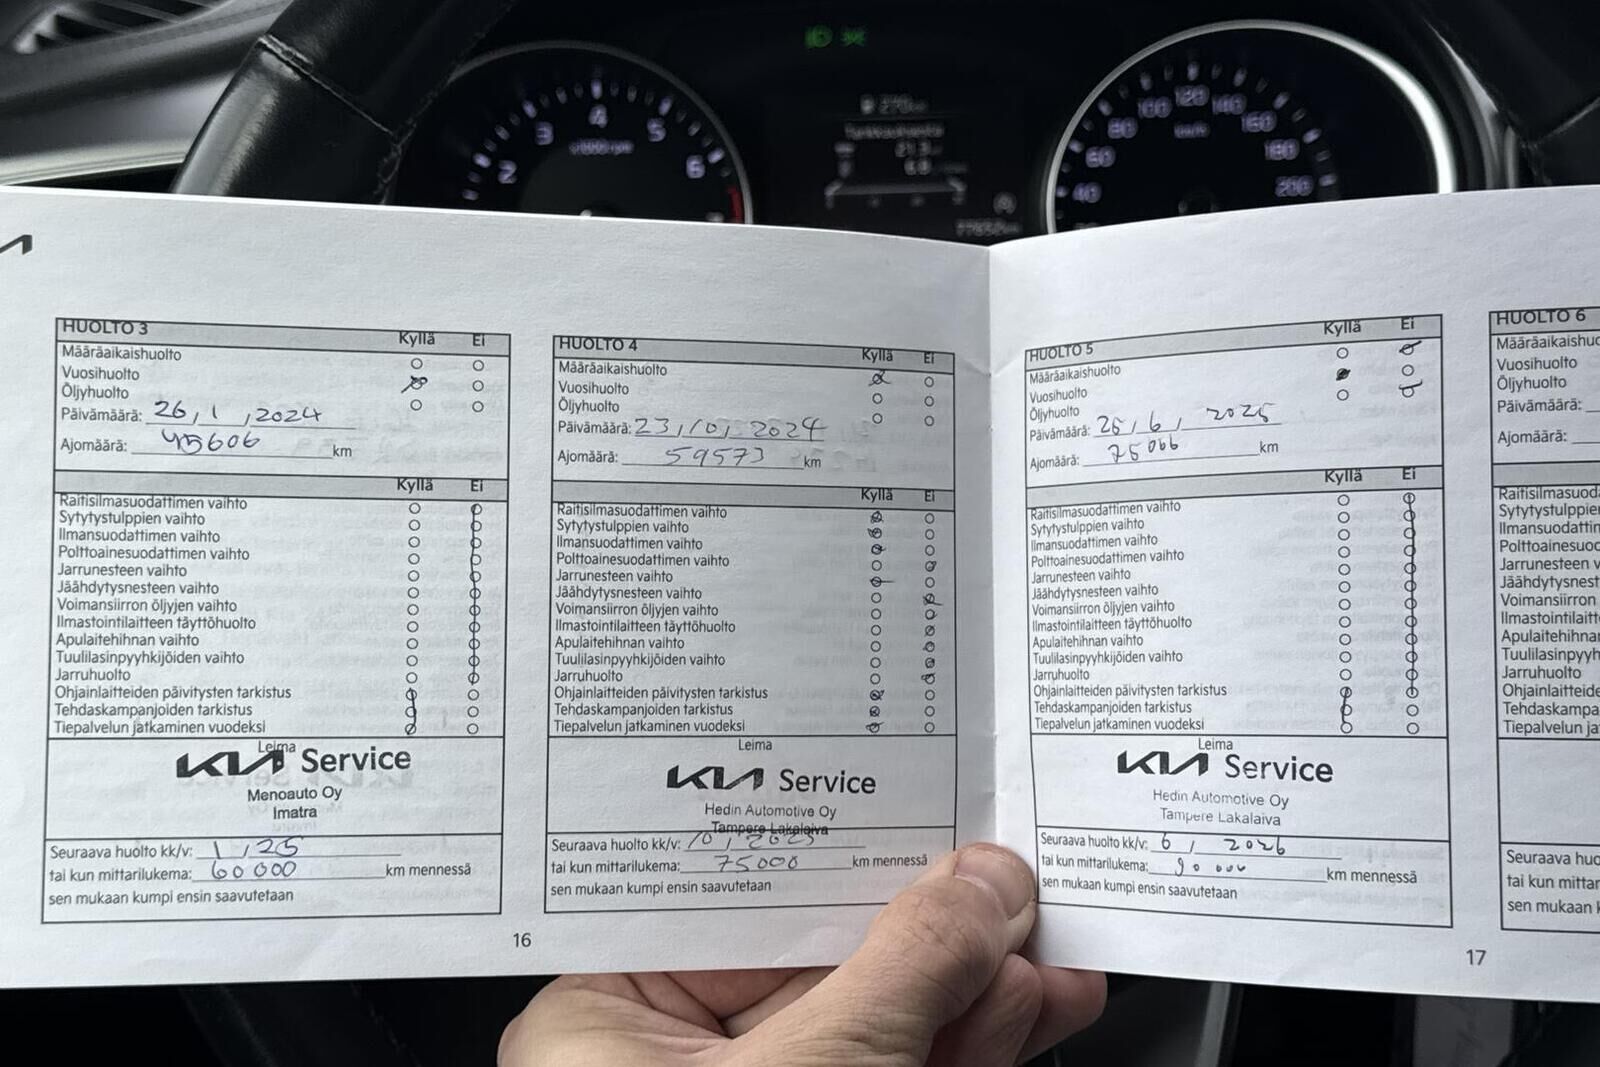 2
3
4
5
6
x1000 rpm
40
60
80
100
120
140
160
180
200
km/h
HUOLTO 3
Kyllä Ei
Määräaikaishuolto
Vuosihuolto
Öljyhuolto
Päivämäärä: 26,1,2024
Ajomäärä: 45606 km
Kyllä Ei
Raitisilmasuodattimen vaihto
Sytytystulppien vaihto
Ilmansuodattimen vaihto
Polttoainesuodattimen vaihto
Jarrunesteen vaihto
Jäähdytysnesteen vaihto
Voimansiirron öljyjen vaihto
Ilmastointilaitteen täyttöhuolto
Apulaitehihnan vaihto
Tuulilasinpyyhkijöiden vaihto
Jarruhuolto
Ohjainlaitteiden päivitysten tarkistus
Tehdaskampanjoiden tarkistus
Tiepalvelun jatkaminen vuodeksi
Leima
KIA Service
Menoauto Oy
Imatra
Seuraava huolto kk/v: 1,25
tai kun mittarilukema: 60000 km mennessä
sen mukaan kumpi ensin saavutetaan
HUOLTO 4
Kyllä Ei
Määräaikaishuolto
Vuosihuolto
Öljyhuolto
Päivämäärä: 23,10,2024
Ajomäärä: 59573 km
Kyllä Ei
Raitisilmasuodattimen vaihto
Sytytystulppien vaihto
Ilmansuodattimen vaihto
Polttoainesuodattimen vaihto
Jarrunesteen vaihto
Jäähdytysnesteen vaihto
Voimansiirron öljyjen vaihto
Ilmastointilaitteen täyttöhuolto
Apulaitehihnan vaihto
Tuulilasinpyyhkijöiden vaihto
Jarruhuolto
Ohjainlaitteiden päivitysten tarkistus
Tehdaskampanjoiden tarkistus
Tiepalvelun jatkaminen vuodeksi
Leima
KIA Service
Hedin Automotive Oy
Tampere Lakalaiva
Seuraava huolto kk/v: 10, 2025
tai kun mittarilukema: 75000 km mennessä
sen mukaan kumpi ensin saavutetaan
16
HUOLTO 5
Kyllä Ei
Määräaikaishuolto
Vuosihuolto
Öljyhuolto
Päivämäärä: 25,6, 2025
Ajomäärä: 75066 km
Kyllä Ei
Raitisilmasuodattimen vaihto
Sytytystulppien vaihto
Ilmansuodattimen vaihto
Polttoainesuodattimen vaihto
Jarrunesteen vaihto
Jäähdytysnesteen vaihto
Voimansiirron öljyjen vaihto
Ilmastointilaitteen täyttöhuolto
Apulaitehihnan vaihto
Tuulilasinpyyhkijöiden vaihto
Jarruhuolto
Ohjainlaitteiden päivitysten tarkistus
Tehdaskampanjoiden tarkistus
Tiepalvelun jatkaminen vuodeksi
Leima
KIA Service
Hedin Automotive Oy
Tampere Lakalaiva
Seuraava huolto kk/v: 6, 2026
tai kun mittarilukema: 90000 km mennessä
sen mukaan kumpi ensin saavutetaan
17
HUOLTO 6
Määräaikaishuo
Vuosihuolto
Öljyhuolto
Päivämäärä:
Ajomäärä:
Raitisilmasuoda
Sytytystulppie
Ilmansuodattim
Polttoainesuod
Jarrunesteen v
Jäähdytysnest
Voimansiirron
Ilmastointilaitt
Apulaitehihna
Tuulilasinpyyh
Jarruhuolto
Ohjainlaitteide
Tehdaskampa
Tiepalvelun ja
Seuraava huo
tai kun mittar
sen mukaan k